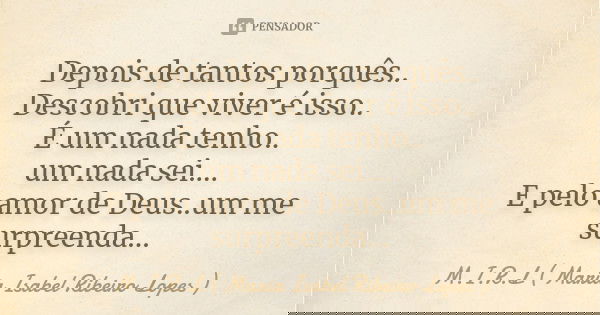 PENSADOR
Depois de tantos porquês..
Descobri que viver é isso..
É um nada tenho.
um nada sei....
E pelo amor de Deus..um me
surpreenda...
M.I.R.L ( Maria Isabel Ribeiro Lopes )